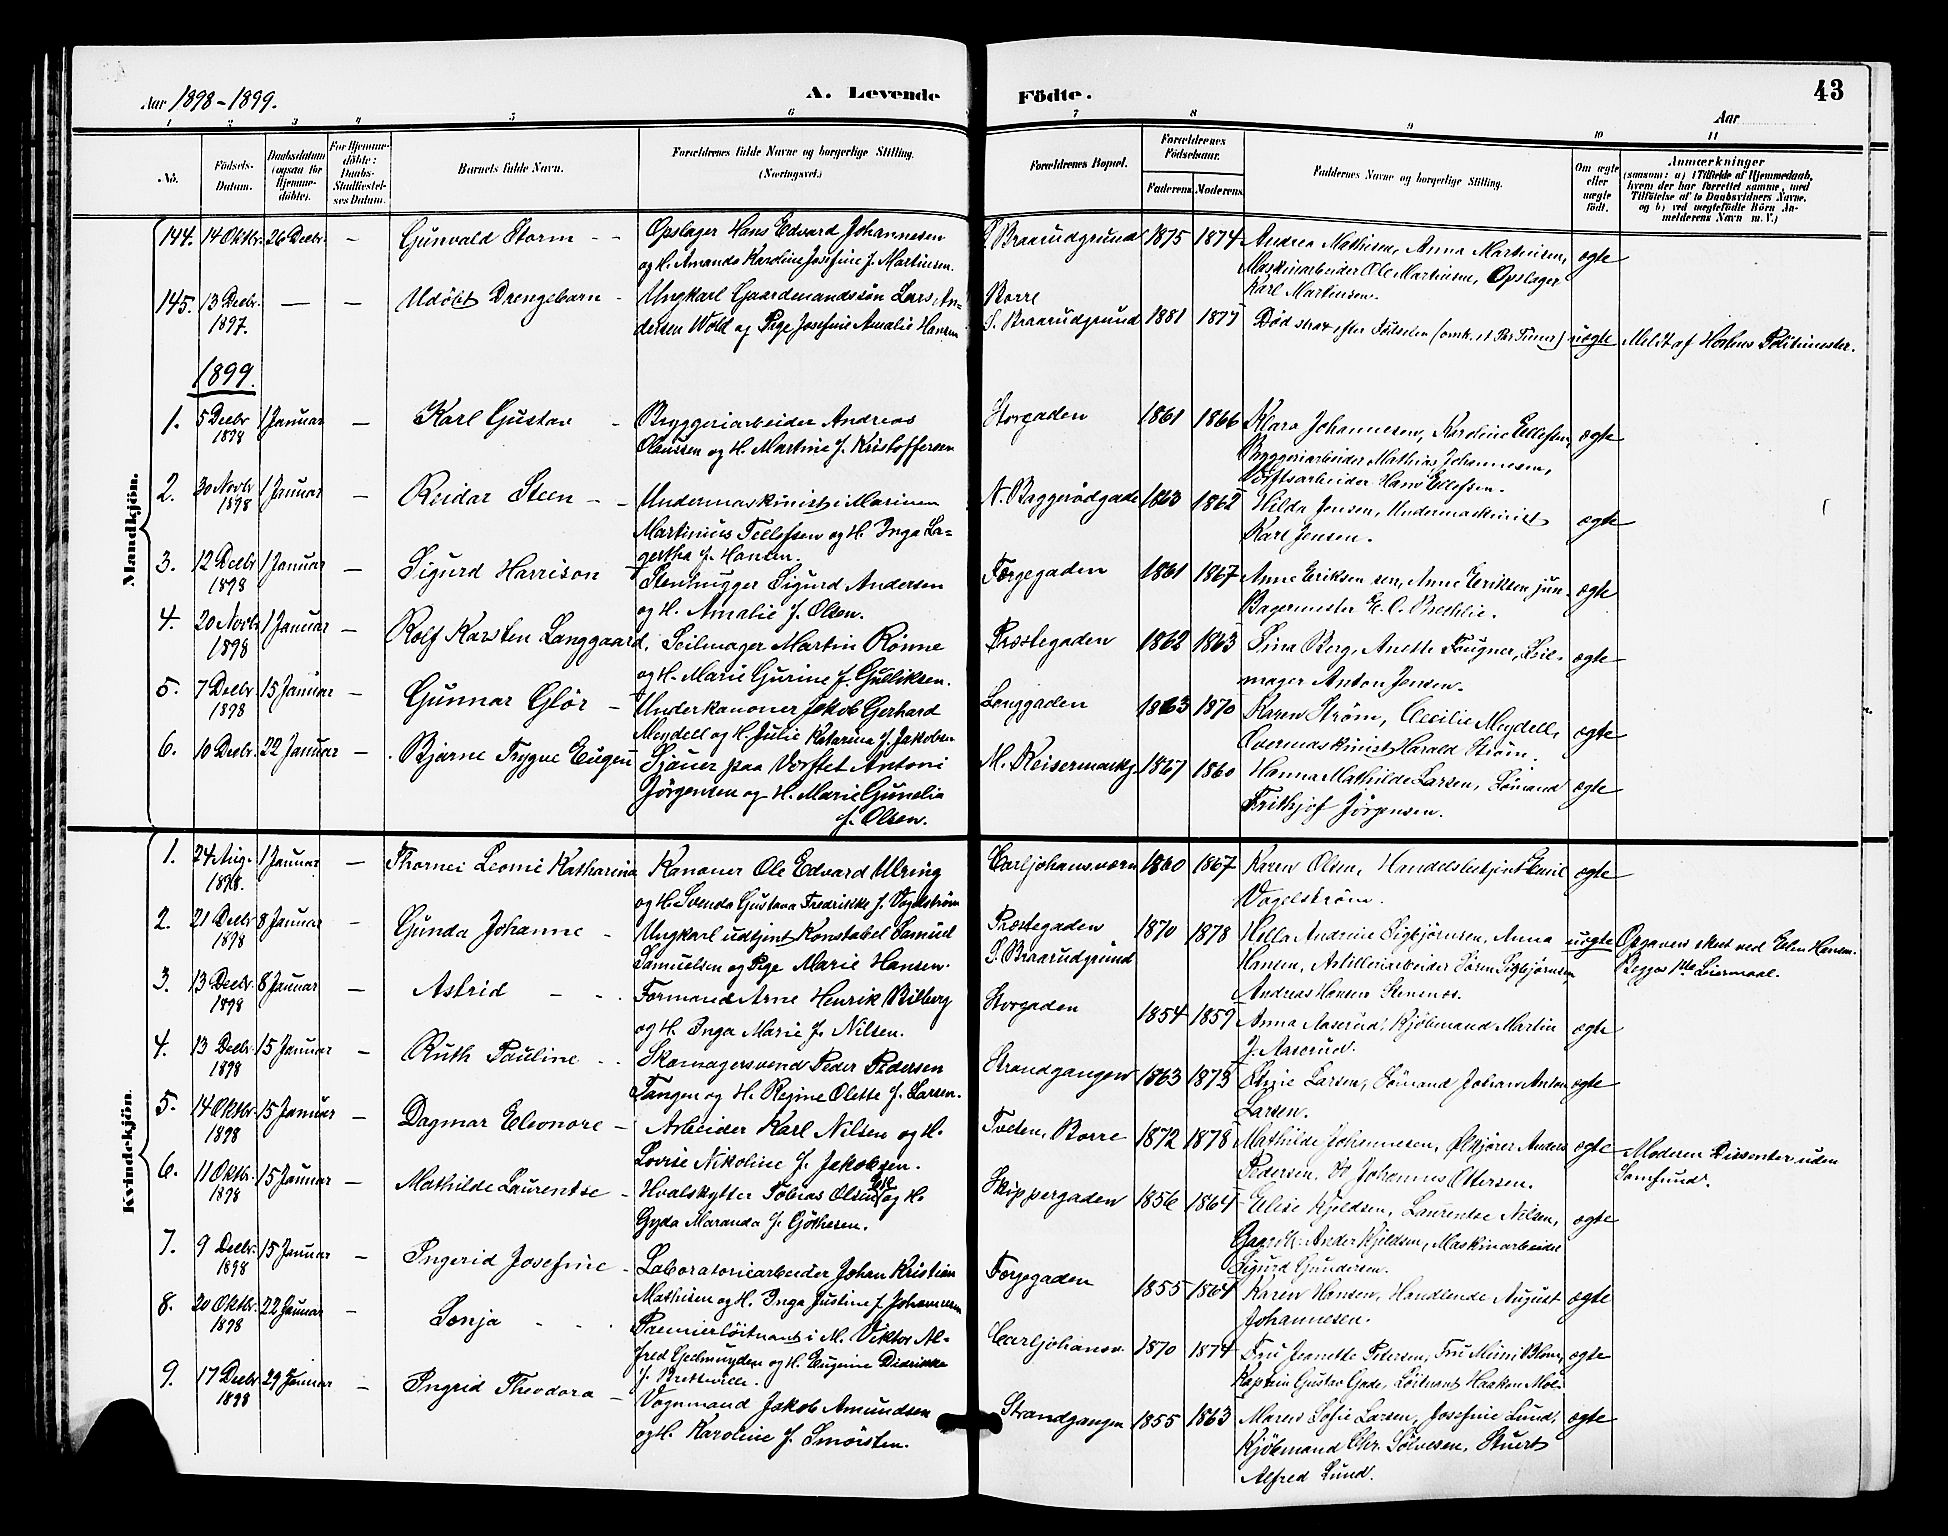 Aar 1898-1899.
A. Levende
Födte.
43
Aar
1 2 3 4 5 6 7 8 9 10 11
No.
Födsels-
Datum.
Daabsdatum
(ogsaa for
Hjemme-
döbte).
For Hjemme-
döbte:
Daabs-
Stadfæstel-
ses Datum.
Barnets fulde Navn.
Forældrenes fulde Navne og borgerlige Stilling.
(Næringsvei.)
Forældrenes Bopæl.
Forældrenes
Födselsaar.
Faderens
Moderens
Faddernes Navne og borgerlige Stilling.
Om ægte
eller
uægte
födt.
Anmærkninger
(saasom: a) i Tilfælde af Hjemmedaab,
hvem der har forrettet samme, med
Tilföielse af to Daabsvidners Navne,
og b) ved uægtefödte Börn An-
melderens Navn m. V.)
Mandkjön.
144. 14 Oktbr. 26 Decbr. – Gunvald Storm – – Opslager Hans Edvard Johannesen
og H. Amanda Karoline Josefine f. Martinsen.
S. Braarudgrund 1875 1874 Andrea Mathisen, Anna Martinsen, ægte
Maskinarbeider Ole Martinsen, Opslager
Karl Martinsen.
145. 13 Decbr. 1897. – – Udöbt Drengebarn – Ungkarl Gaardmandssön Lars An-
dersen Wold og Pige Josefine Amalie Hansen
Borre
S. Braarudgrund 1881 1877 Död strax efter Fødselen (omk. et Par Timer) uægte Meldt af Hortens Politimester.
1899.
1. 5 Decbr 1898 1 Januar – Karl Gustav – Bryggeriarbeider Andreas
Olaussen og H. Martine f. Kristoffersen
Storgaden 1861 1866 Klara Johannesen, Karoline Ellefsen, ægte
Bryggeriarbeider Mathias Johannesen,
Værftsarbeider Hans Ellefsen.
2. 30 Novbr 1898 1 Januar – Reidar Steen – – Undermaskinist i Marinen
Martinius Tellefsen og H. Inga La-
gertha f. Hansen.
N. Baggerödgade 1863 1862 Hilda Jensen, Undermaskinist ægte
Karl Jensen.
3. 12 Decbr 1898 1 Januar – Sigurd Harrison – Stenhugger Sigurd Andersen
og H. Amalie f. Olsen.
Torgegaden 1861 1867 Anne Eriksen sen, Anne Eriksen jun. ægte
Bagermester E. C. Bechlie.
4. 20 Novbr 1898 1 Januar – Rolf Karsten Langgaard. Seilmager Martin Rönne
og H. Marie Gurine f. Gulliksen.
Præstegaden 1862 1863 Sina Berg, Anette Fougner, Seil- ægte
mager Anton Jensen.
5. 7 Decbr. 1898 15 Januar – Gunnar Glör – Underkanoner Jakob Gerhard
Meydell og H. Julie Katarina f. Jakobsen
Langgaden 1863 1870 Karen Ström, Cecilie Meydell, ægte
Overmaskinist Harald Ström.
6. 10 Decbr. 22 Januar – Bjarne Trygve Eugen Sjauer paa Værftet Antoni
Jörgensen og H. Marie Gunelia
f. Olsen.
M. Keisermarkg. 1867 1860 Hanna Mathilde Larsen, Sömand ægte
Frithjof Jörgensen.
Kvindekjön.
1. 24 Aug. 1898. 1 Januar – Thornei Leonie Katharina Kanoner Ole Edvard Ulring
og H. Svenda Gustava Fredrikke f. Vogelström
Carljohansværn 1860 1867 Karen Olsen, Handelsbetjent Emil ægte
Vogelström.
2. 21 Decbr 1898 8 Januar – Gunda Johanne – Ungkarl udtjent Konstabel Samuel
Samuelsen og Pige Marie Hansen.
Præstegaden
S. Braarudgrund 1870 1878 Hella Andrine Sigbjörnsen, Anna uægte
Hansen, Artilleriarbeider Sören Sigbjörnsen,
Andreas Hansen Stenenes.
Opgaven sket ved Elen Hansen.
Begges 1ste Leiermaal.
3. 13 Decbr 1898 8 Januar – Astrid – – Formand Arne Henrik Bilberg
og H. Inga Marie f. Nilsen.
Storgaden 1854 1859 Anna Aaserud, Kjöbmand Martin ægte
J. Aaserud.
4. 13 Decbr 1898 15 Januar – Ruth Pauline – Skomagersvend Peder Pedersen
Tangen og H. Regine Olette f. Larsen.
Strandgangen 1863 1873 Larsen, Sömand Johan Anton ægte
Larsen.
5. 14 Oktbr. 1898 15 Januar – Dagmar Eleonore – Arbeider Karl Nilsen og H.
Lovise Nikoline f. Jakobsen.
Tveten, Borre 1872 1878 Mathilde Johannesen, Ölkjörer Anders ægte
Pedersen, Johannes Ottersen.
Moderen Dissenter uden
Samfund.
6. 11 Oktbr. 1898 15 Januar – Mathilde Laurentse – Hvalskytter Tobias Olsen og H.
Gyda Maranda f. Göthesen.
Skippergaden 1856 1864 Elise Kjeldsen, Laurentse Nilsen, ægte
Anders Kjeldsen, Maskinarbeider
Sigurd Gundersen.
7. 9 Decbr. 1898 15 Januar – Ingerid Josefine – Laboratoriearbeider Johan Kristian
Mathisen og H. Inga Justine f. Johannesen
Torgegaden 1855 1864 Karen Hansen, Handlende August ægte
Johannesen.
8. 20 Oktbr. 1898 22 Januar – Sonja – – Premierlöitnant i M. Viktor Al-
fred Gelmuyden og H. Eugenie Didrikke
f. Bretteville.
Carljohansv. 1870 1874 Fru Jeanette Petersen, Fru Mimi Blom, ægte
Kaptein Gustav Gade, Löitnant Haakon
9. 17 Decbr 1898 29 Januar – Ingrid Theodora – Vognmand Jakob Amundsen
og H. Karoline f. Smörsten.
Strandgangen 1855 1863 Maren Sofie Larsen, Josefine Lund, ægte
Kjöbmand Chr. Sölvesen, Stuert
Alfred Lund.